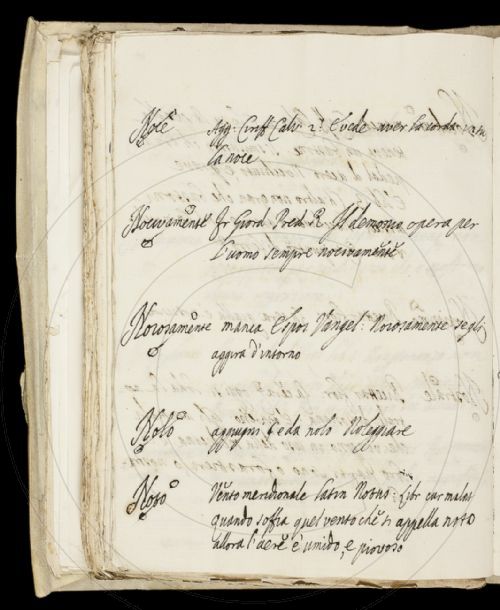 Noce Agg: Ciriff Calv. 2: E vede aver la corda
la noce
Nocivamente Fr Giord Pred R Il demonio opera per
l'uomo sempre nocivamente
Noiosamente manca Espos Vangel: Noiosamente segli
aggira d'intorno
Nolo aggiugni e da nolo Noleggiare
Noto Vento meridionale Latin Notus: Libr cur malat
quando soffia quel vento che si appella noto
allora l'aere è umido, e piovoso